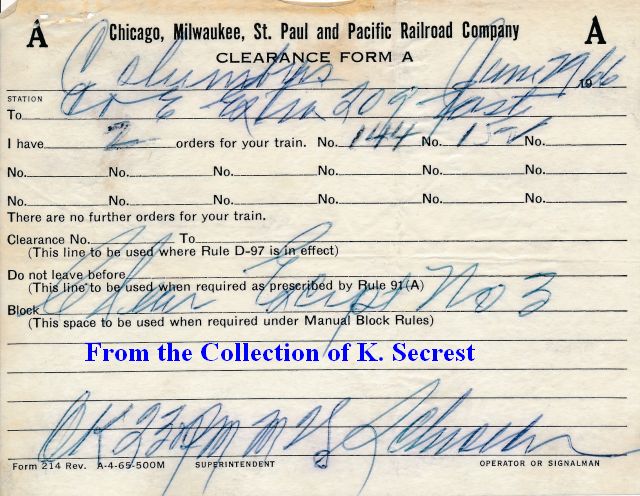 A Chicago, Milwaukee, St. Paul and Pacific Railroad Company A
CLEARANCE FORM A
Columbus June 29 1966
STATION
To C&E Extra 209 East
I have 2 orders for your train. No. 144 No. 152 No.
No. No. No. No. No. No.
No. No. No. No. No. No.
There are no further orders for your train.
Clearance No. To
(This line to be used where Rule D-97 is in effect)
Do not leave before
(This line to be used when required as prescribed by Rule 91(A)
Block Clear Except No 3
(This space to be used when required under Manual Block Rules)
From the Collection of K. Secrest
OK PM
Form 214 Rev. A-4-65-500M SUPERINTENDENT OPERATOR OR SIGNALMAN